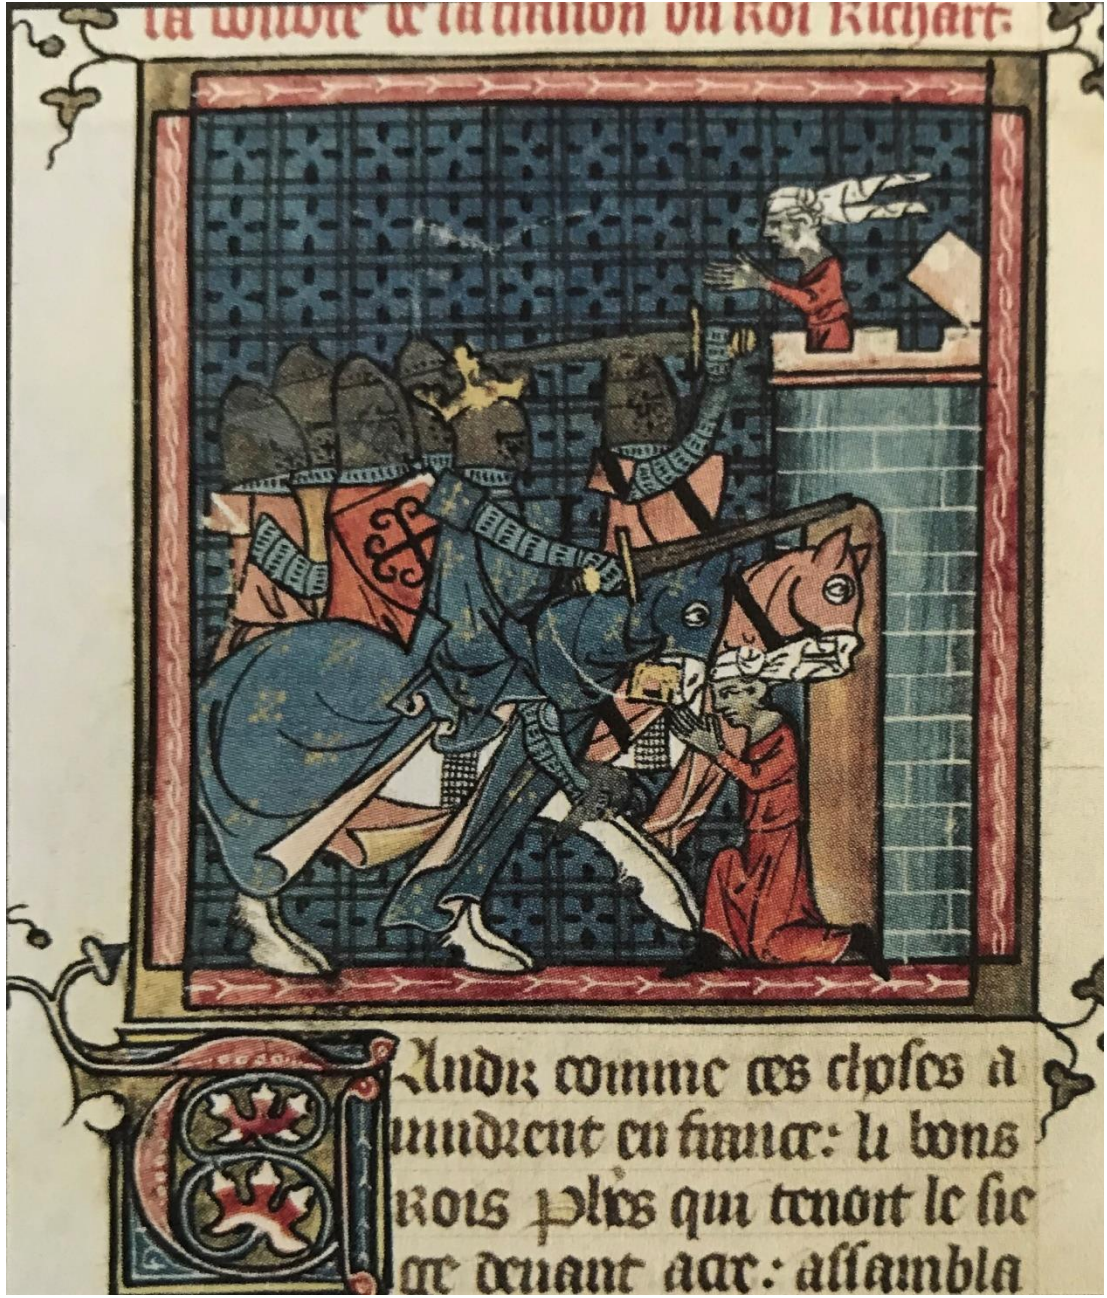 la doubte de la traison du Roi Richart.
Andis comme ces choses a
uindrent en france: li bons
rois phes qui tenoit le sie
ge deuant acre: assambla